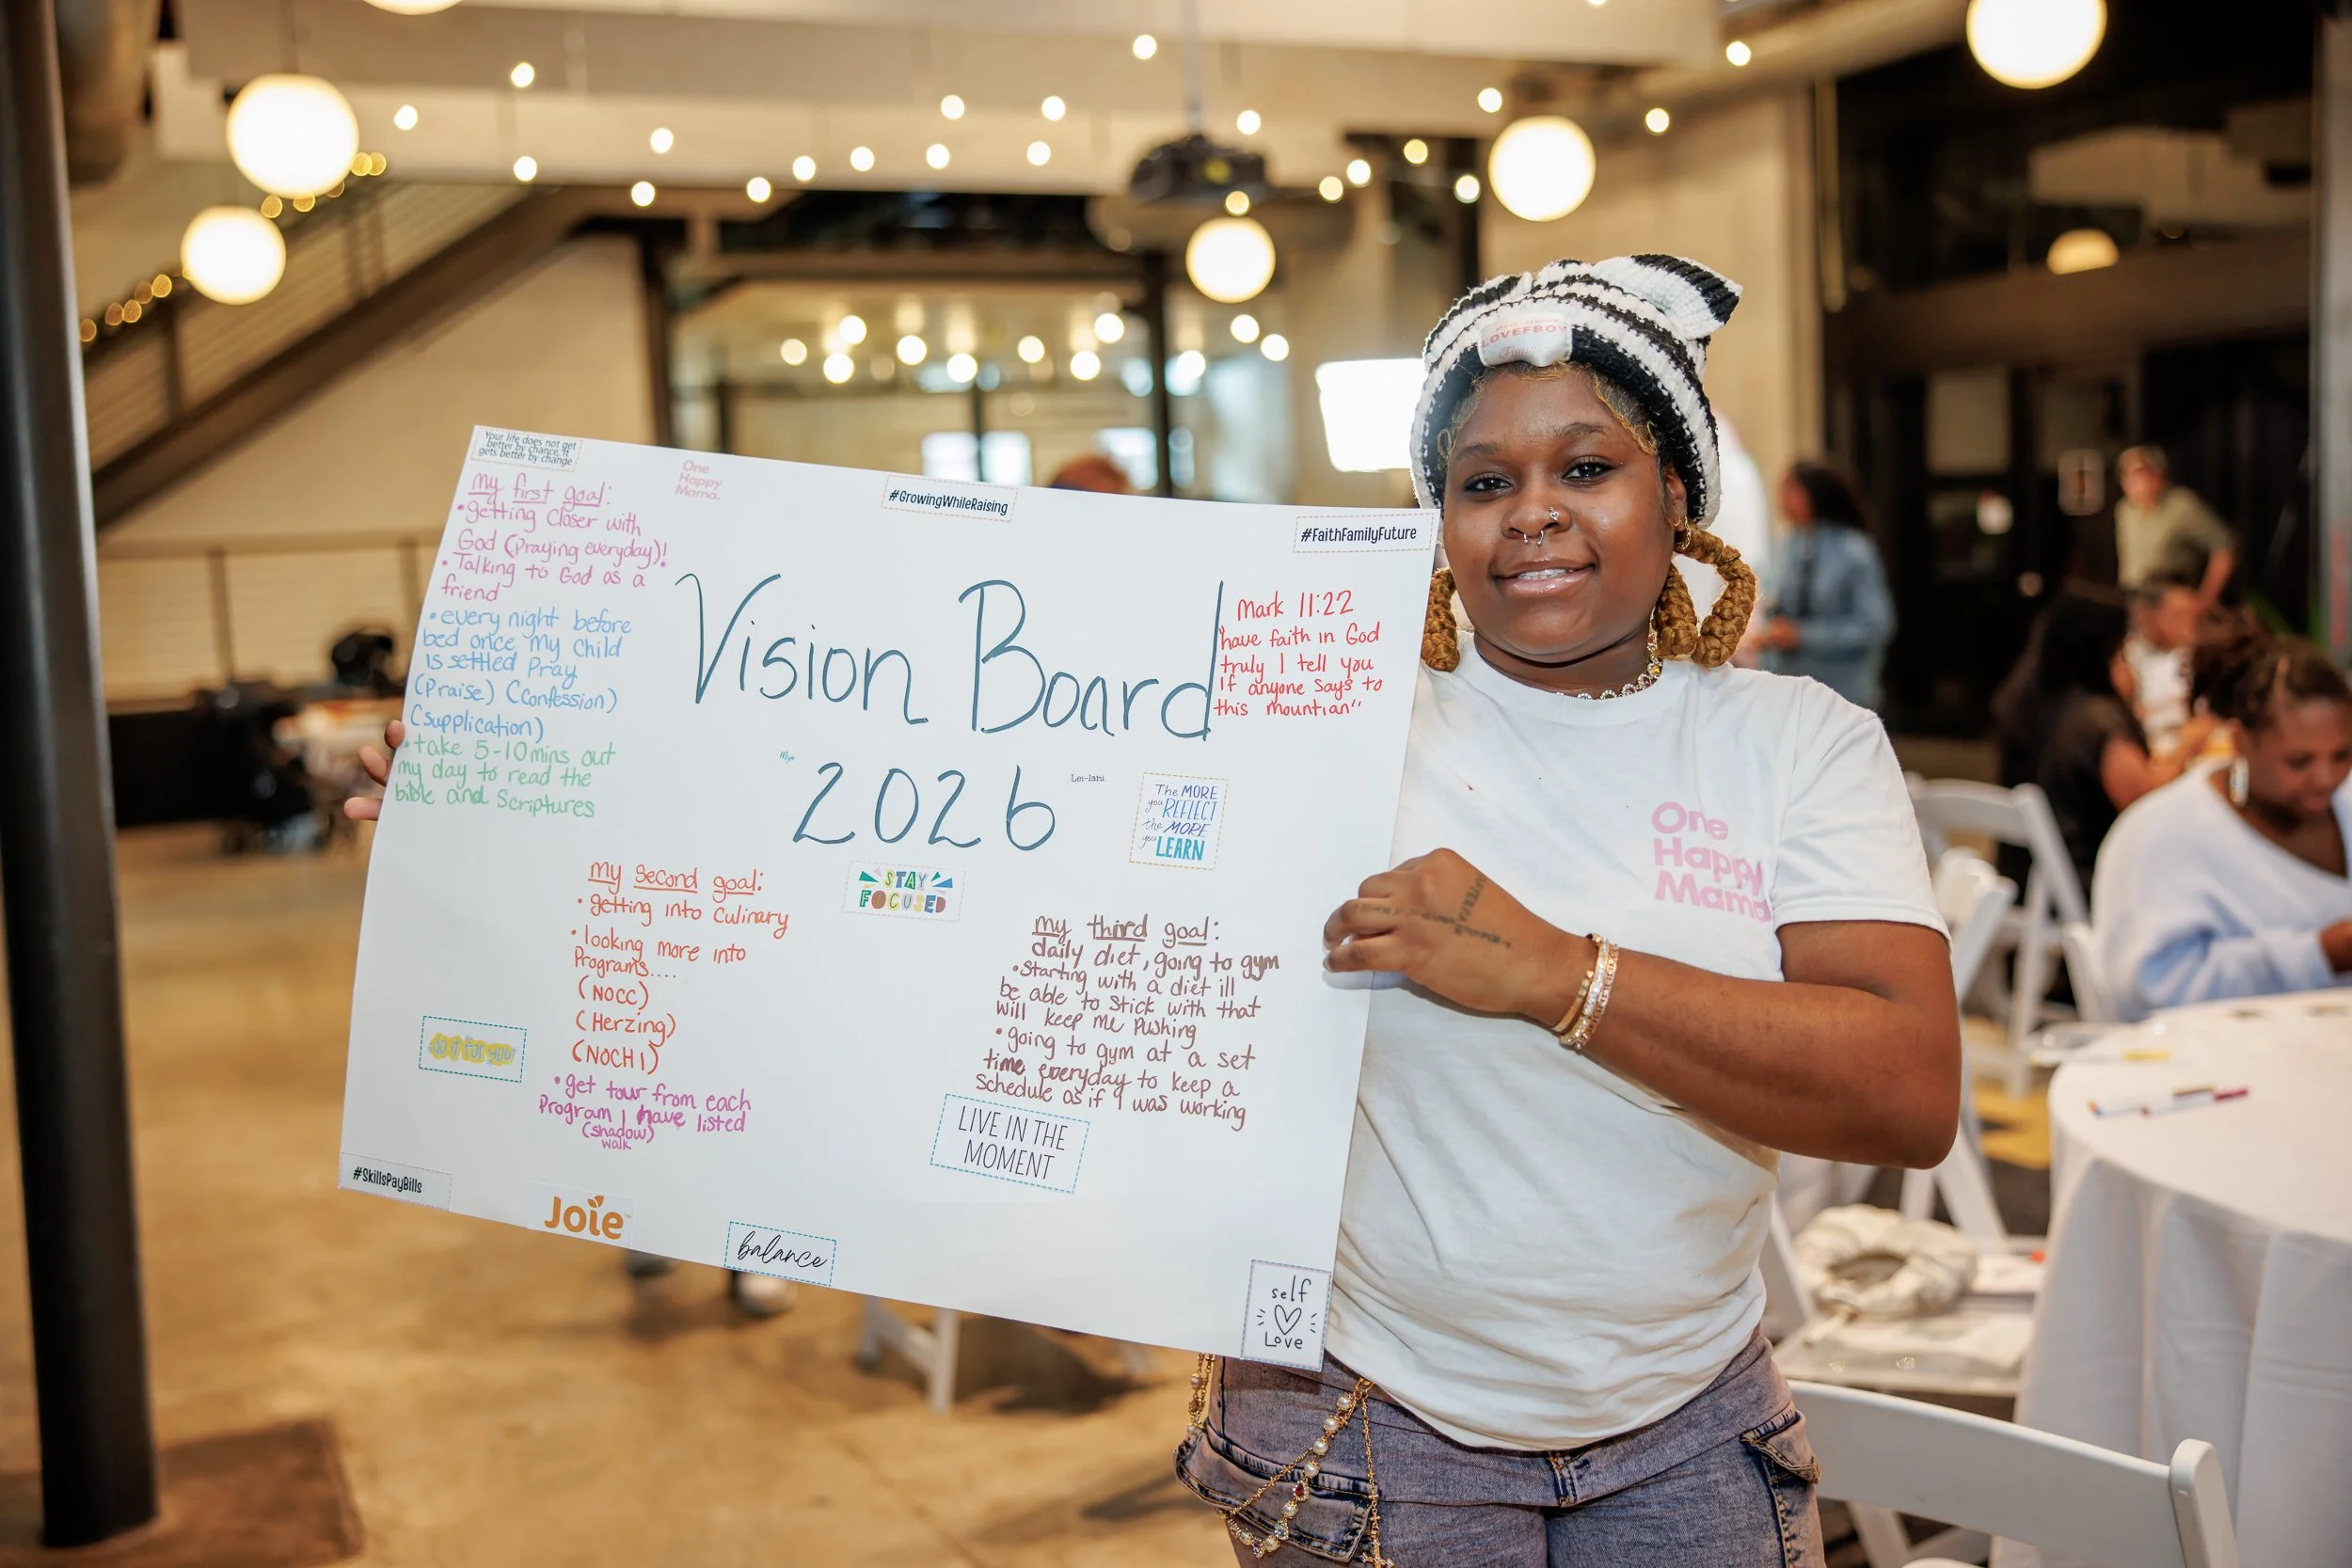 Your life does not get
better by chance, it
gets better by change
One
Happy
Mama.
#GrowingWhileRaising
#FaithFamilyFuture
my first goal:
• getting closer with
God (Praying everyday)!
• Talking to God as a
friend
• every night before
bed once my child
is settled Pray
(Praise) (Confession)
(supplication)
• take 5-10 mins out
my day to read the
bible and Scriptures
Vision Board
2026
Mark 11:22
"have faith in God
truly I tell you
if anyone says to
this mountian"
Mya
Lei-lani
The MORE
you REFLECT
the MORE
you LEARN
STAY
FOCUSED
my second goal:
• getting into Culinary
• looking more into
Programs....
(NOCC)
(Herzing)
(NOCHI)
• get tour from each
Program I have listed
(shadow)
walk
my third goal:
daily diet, going to gym
• Starting with a diet ill
be able to stick with that
will keep me pushing
• going to gym at a set
time everyday to keep a
schedule as if I was working
do it for you!
LIVE IN THE
MOMENT
#SkillsPayBills
Joie
balance
self
Love
LOVEFBOY
One
Happy
Mama